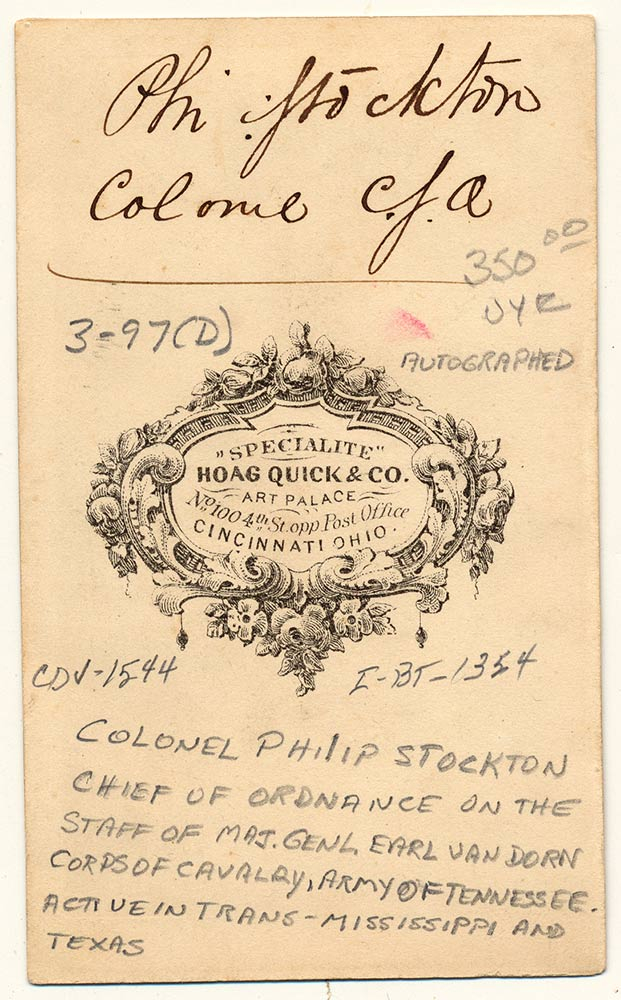 Phil. Stockton
Colonel C.S.A
350 00
3-97(D)
AUTOGRAPHED
"SPECIALITE"
HOAG QUICK & CO.
ART PALACE
No. 100 4th St. opp Post Office
CINCINNATI OHIO.
CDV-1544
I-BT-1354
COLONEL PHILIP STOCKTON
CHIEF OF ORDNANCE ON THE
STAFF OF MAJ. GENL EARL VAN DORN
CORPS OF CAVALRY, ARMY OF TENNESSEE.
ACTIVE IN TRANS-MISSISSIPPI AND
TEXAS